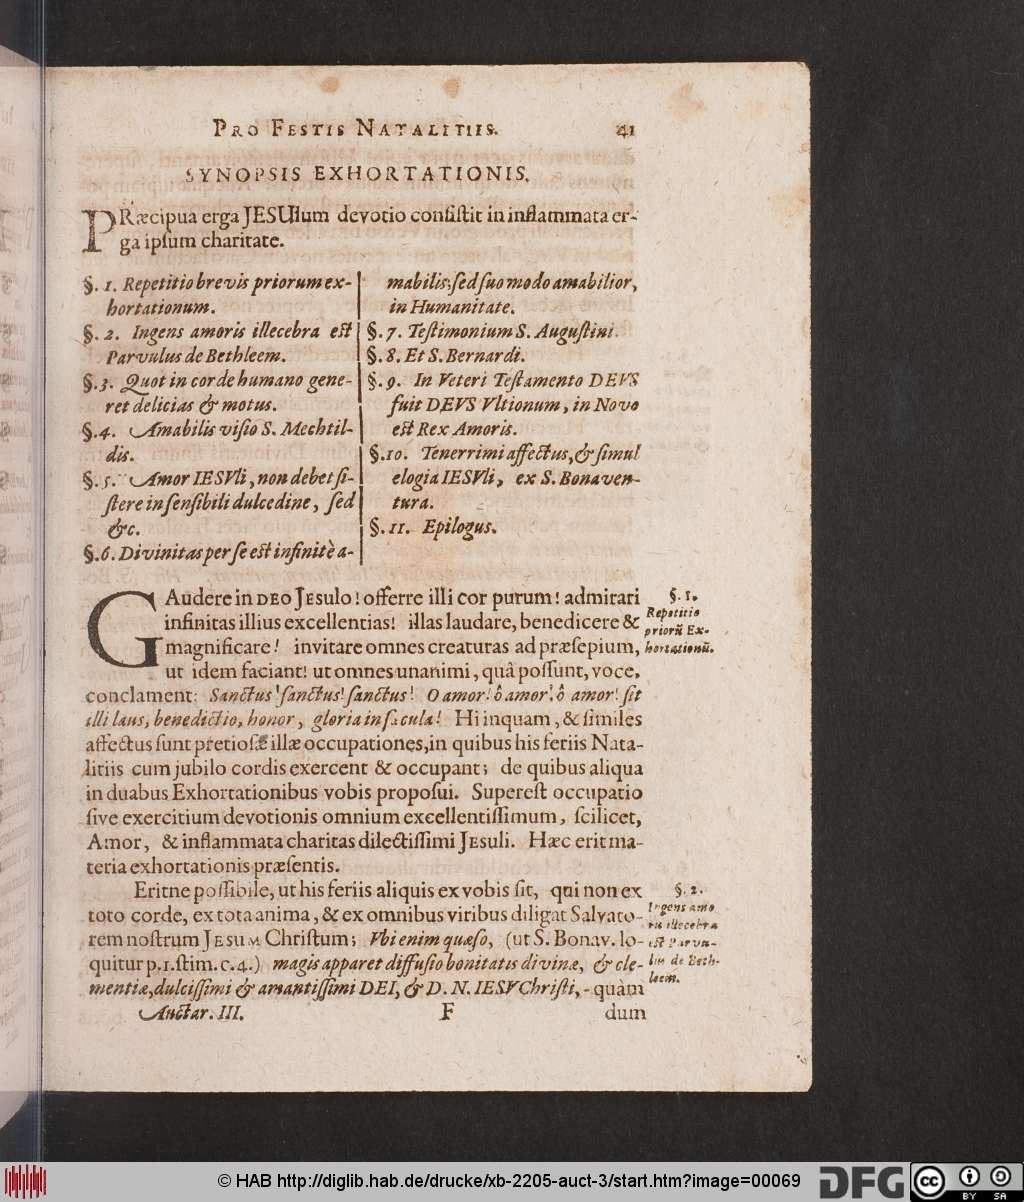 PRO FESTIS NATALITIIS. 41
SYNOPSIS EXHORTATIONIS.
PRæcipua erga JESUlum devotio conſiſtit in inflammata er-
ga ipſum charitate.
§. 1. Repetitio brevis priorum ex-
hortationum.
§. 2. Ingens amoris illecebra est
Parvulus de Bethleem.
§. 3. Quot in corde humano gene-
ret delicias & motus.
§. 4. Amabilis viſio S. Mechtil-
dis.
§. 5. Amor IESVli, non debet ſi-
ſtere in ſenſibili dulcedine, ſed
&c.
§. 6. Divinitas per ſe est infinitè a-
mabilis; ſed ſuo modo amabilior,
in Humanitate.
§. 7. Teſtimonium S. Auguſtini.
§. 8. Et S. Bernardi.
§. 9. In Veteri Teſtamento DEVS
fuit DEVS Vltionum, in Novo
est Rex Amoris.
§. 10. Tenerrimi affectus, & ſimul
elogia IESVli, ex S. Bonaven-
tura.
§. 11. Epilogus.
GAudere in DEO JEsulo! offerre illi cor purum! admirari
infinitas illius excellentias! illas laudare, benedicere &
magnificare! invitare omnes creaturas ad præſepium,
ut idem faciant! ut omnes unanimi, quâ poſſunt, voce,
conclament: Sanctus! ſanctus! ſanctus! O amor! ô amor! ô amor! ſit
illi laus, benedictio, honor, gloria in ſæcula! Hi inquam, & ſimiles
affectus ſunt pretioſæ illæ occupationes, in quibus his feriis Nata-
litiis cum jubilo cordis exercent & occupant; de quibus aliqua
in duabus Exhortationibus vobis propoſui. Supereſt occupatio
ſive exercitium devotionis omnium excellentiſſimum, ſcilicet,
Amor, & inflammata charitas dilectiſſimi JEsuli. Hæc erit ma-
teria exhortationis præſentis.
§. 1.
Repetitio
priorũ Ex-
hortationũ.
Eritne poſſibile, ut his feriis aliquis ex vobis ſit, qui non ex
toto corde, ex tota anima, & ex omnibus viribus diligat Salvato-
rem noſtrum JESUM Chriſtum; Vbi enim quæſo, (ut S. Bonav. lo-
quitur p. 1. ſtim. c. 4.) magis apparet diffuſio bonitatis divinæ, & cle-
mentiæ, dulciſſimi & amantiſſimi DEI, & D. N. IESV Chriſti, quàm
§. 2.
Ingens amo
ris illecebra
est Parvu-
lus de Beth-
leem.
Auctar. III. F dum
© HAB http://diglib.hab.de/drucke/xb-2205-auct-3/start.htm?image=00069
DFG
cc
BY SA